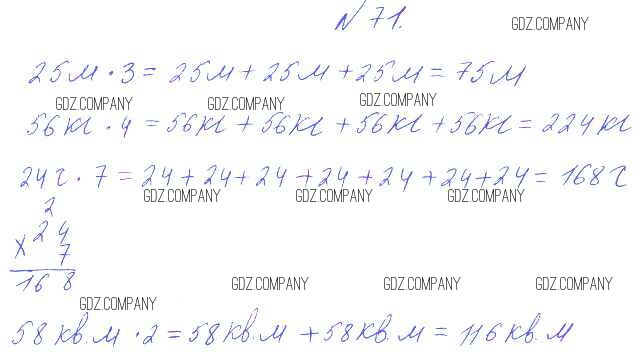 N 71.
GDZ.COMPANY
25м · 3 = 25м + 25м + 25м = 75м
GDZ.COMPANY GDZ.COMPANY GDZ.COMPANY
56кг · 4 = 56кг + 56кг + 56кг + 56кг = 224кг
24г · 7 = 24 + 24 + 24 + 24 + 24 + 24 + 24 = 168г
GDZ.COMPANY GDZ.COMPANY GDZ.COMPANY
2
× 24
7
168
GDZ.COMPANY GDZ.COMPANY GDZ.COMPANY
GDZ.COMPANY
58 кв.м · 2 = 58 кв.м + 58 кв.м = 116 кв.м